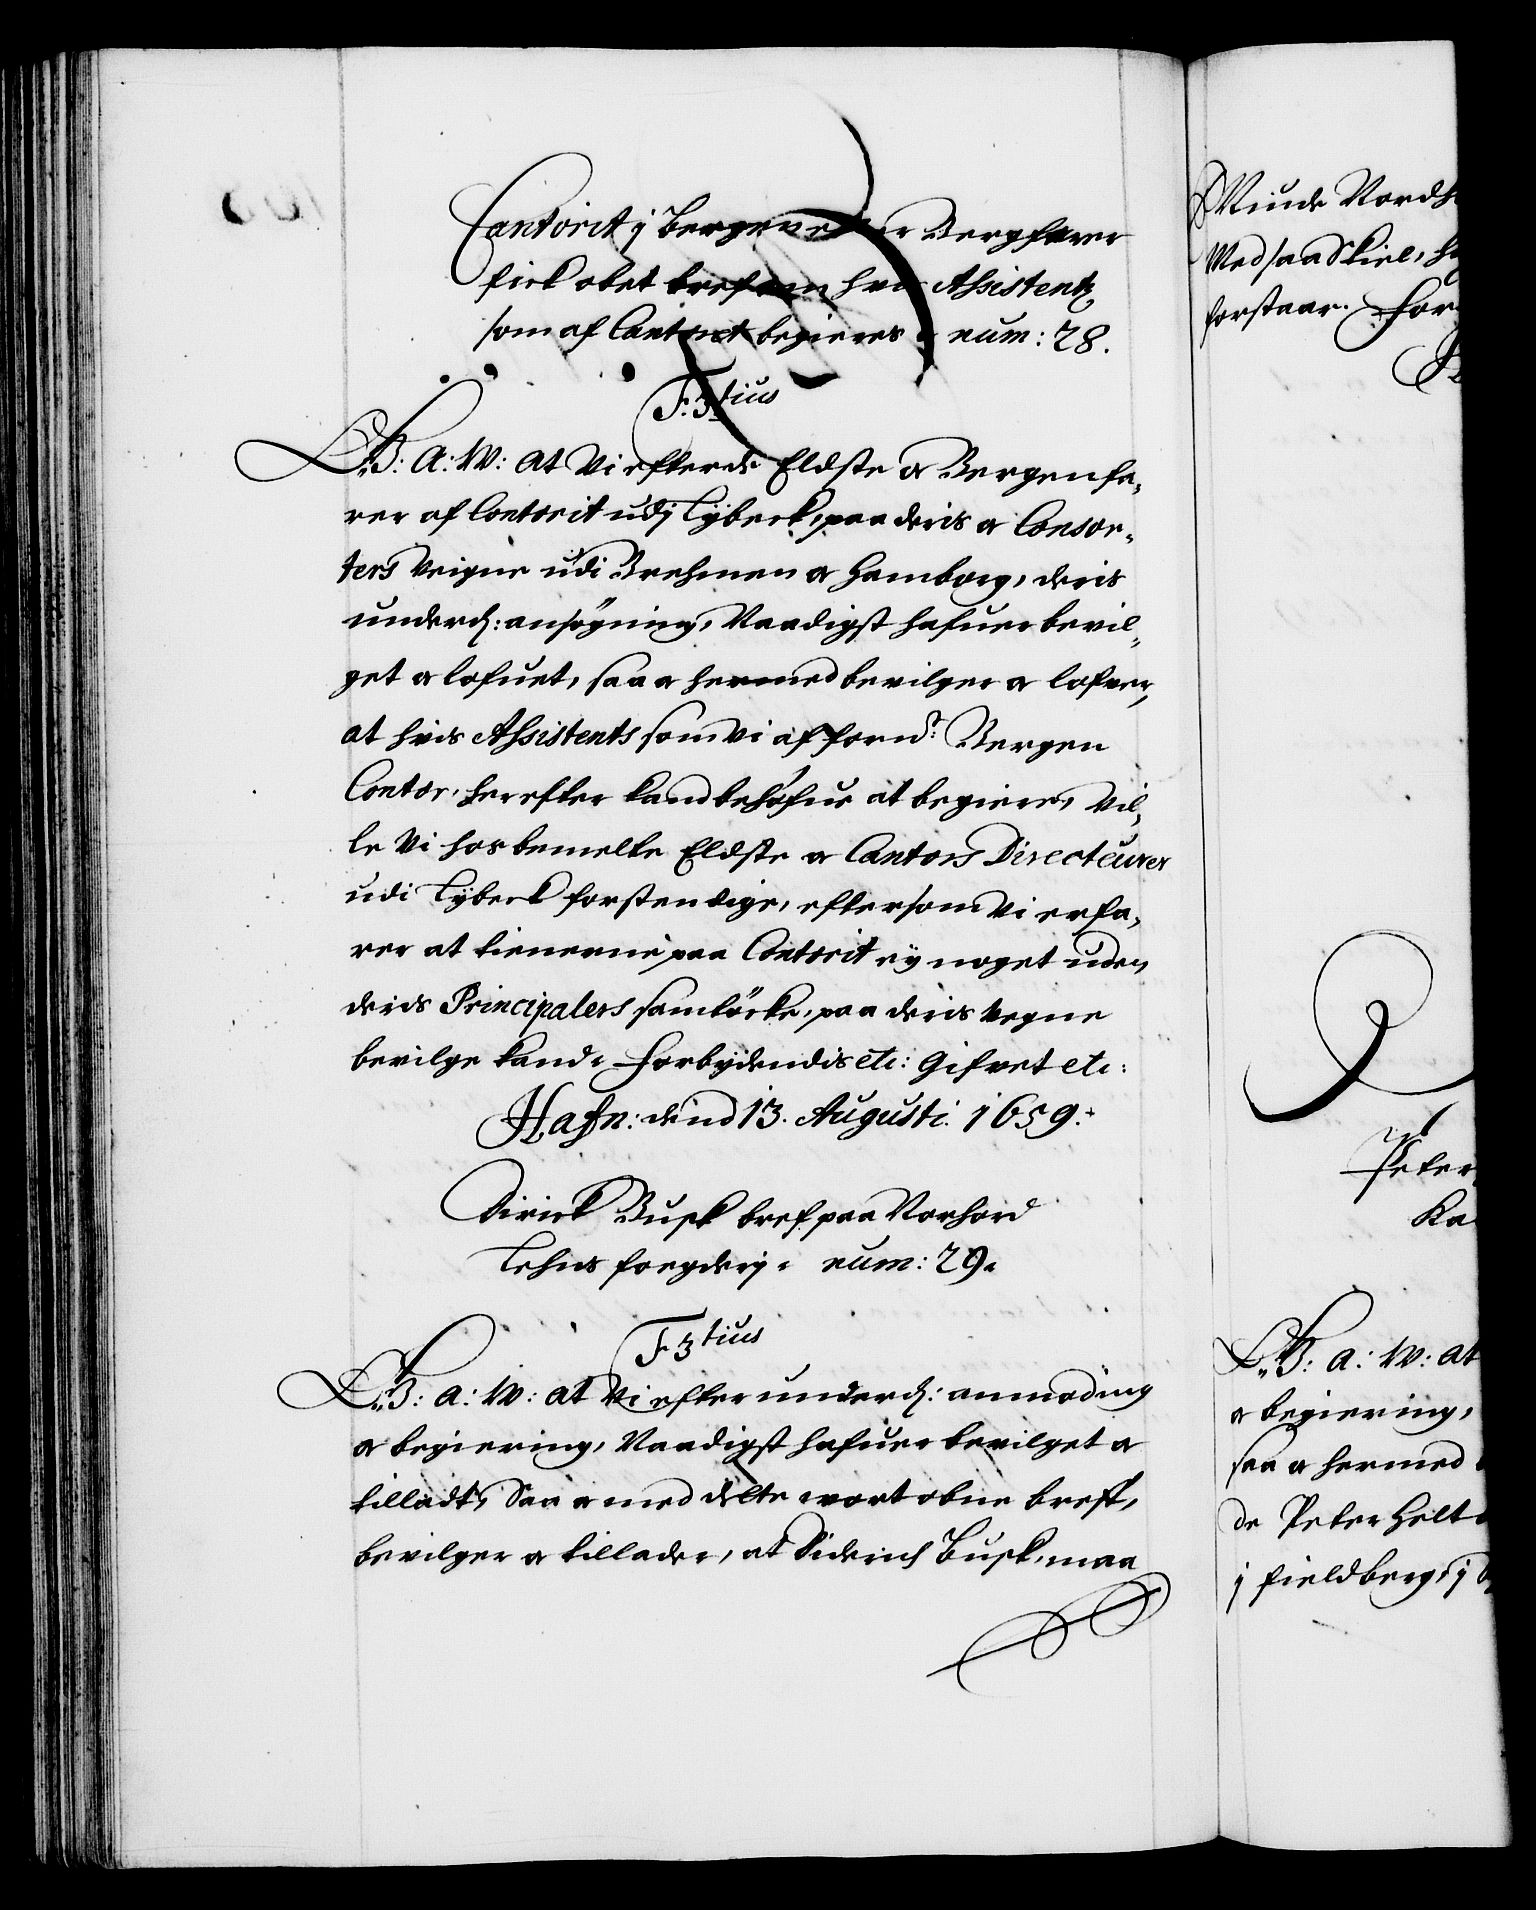 Cantorit j Bergen eller Bergfarer
fick obet bref om hvis Assistentz
som af Cantoret begieres num: 28.
F: 3tius
G. A: W: at Vi efter de Eldste og Bergenfa,,
rer af Contorit udj Lybeck, paa deris og Consor,,
ters Veigne udi Brehmen og Hamborg, deris
underd: ansögning, Naadigst hafuer bevil,,
get og lofuet, saa og hermed bevilger og lofver,
at hvis Assistents som Vi af fornd: Bergen
Contor, herefter kand behöfue at begiere, Vil,,
le Vi hos bemelte Eldste og Cantors Directeurer
udi Lybeck forstendige, eftersom Vi erfa,,
rer at tienerne paa Contorit ey noget uden
deris Principalers samtöcke, paa deris Vegne
bevilge kand. Forbydendis etc: Gifvet etc:
Hafn: dend 13. Augusti. 1659.
Dirick Busk bref paa Norhord
Lehns fogderj. num: 29.
F 3tius
G. B: A: W: at Vi efter underd: anmoding
og begiering, Naadigst hafuer bevilget og
tilladt, Saa og med dette vort obne breff,
bevilger og tillader, at Diderich Busk, maa
Minde Nordh
Med saa Skiel, ha
forstaar. For
Peter
Ka
G. B: A: W: at
og begiering,
saa og hermed
de Peter Helt
j Fieldberg, j